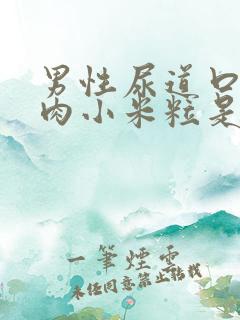 男性尿道口
肉小米粒是
一筆煙雲
未经同意禁止转载